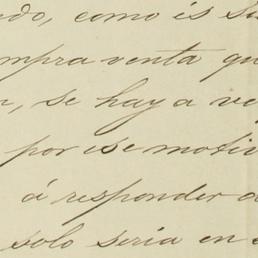 do, como és su
mpra venta qu
n, se haya ve
por ese motiv
á responder d
solo seria en